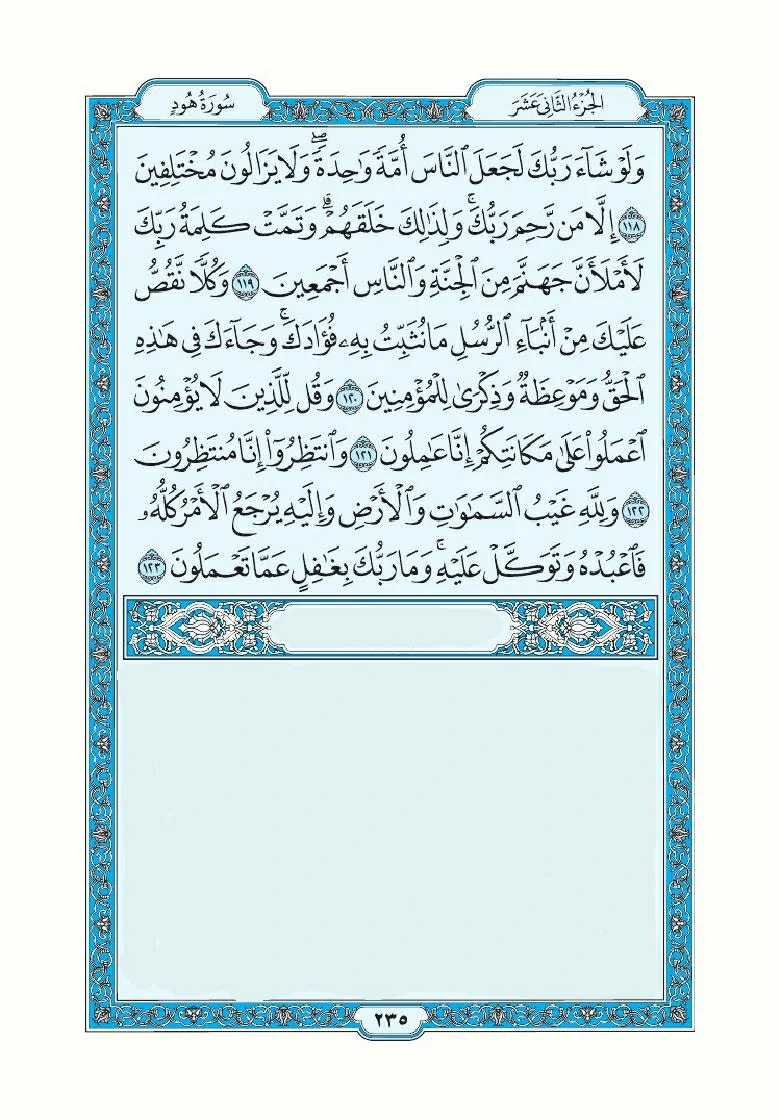 الجُزْءُ الثَّانِىَ عَشَرَ
سُورَةُ هُودٍ
وَلَوْ شَآءَ رَبُّكَ لَجَعَلَ ٱلنَّاسَ أُمَّةً وَٰحِدَةًۖ وَلَا يَزَالُونَ مُخْتَلِفِينَ
١١٨ إِلَّا مَن رَّحِمَ رَبُّكَۚ وَلِذَٰلِكَ خَلَقَهُمْۗ وَتَمَّتْ كَلِمَةُ رَبِّكَ
لَأَمْلَأَنَّ جَهَنَّمَ مِنَ ٱلْجِنَّةِ وَٱلنَّاسِ أَجْمَعِينَ ١١٩ وَكُلًّا نَّقُصُّ
عَلَيْكَ مِنْ أَنۢبَآءِ ٱلرُّسُلِ مَا نُثَبِّتُ بِهِۦ فُؤَادَكَۚ وَجَآءَكَ فِى هَٰذِهِ
ٱلْحَقُّ وَمَوْعِظَةٌ وَذِكْرَىٰ لِلْمُؤْمِنِينَ ١٢٠ وَقُل لِّلَّذِينَ لَا يُؤْمِنُونَ
ٱعْمَلُوا۟ عَلَىٰ مَكَانَتِكُمْ إِنَّا عَٰمِلُونَ ١٢١ وَٱنتَظِرُوٓا۟ إِنَّا مُنتَظِرُونَ
١٢٢ وَلِلَّهِ غَيْبُ ٱلسَّمَٰوَٰتِ وَٱلْأَرْضِ وَإِلَيْهِ يُرْجَعُ ٱلْأَمْرُ كُلُّهُۥ
فَٱعْبُدْهُ وَتَوَكَّلْ عَلَيْهِۚ وَمَا رَبُّكَ بِغَٰفِلٍ عَمَّا تَعْمَلُونَ ١٢٣
٢٣٥